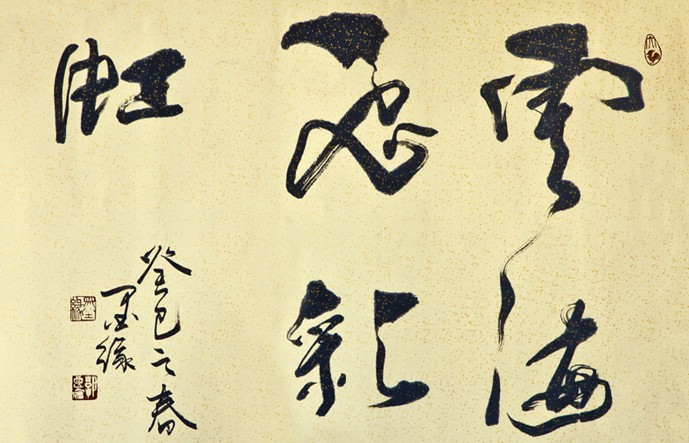 雲海
飛彩
虹
癸巳之春
墨緣